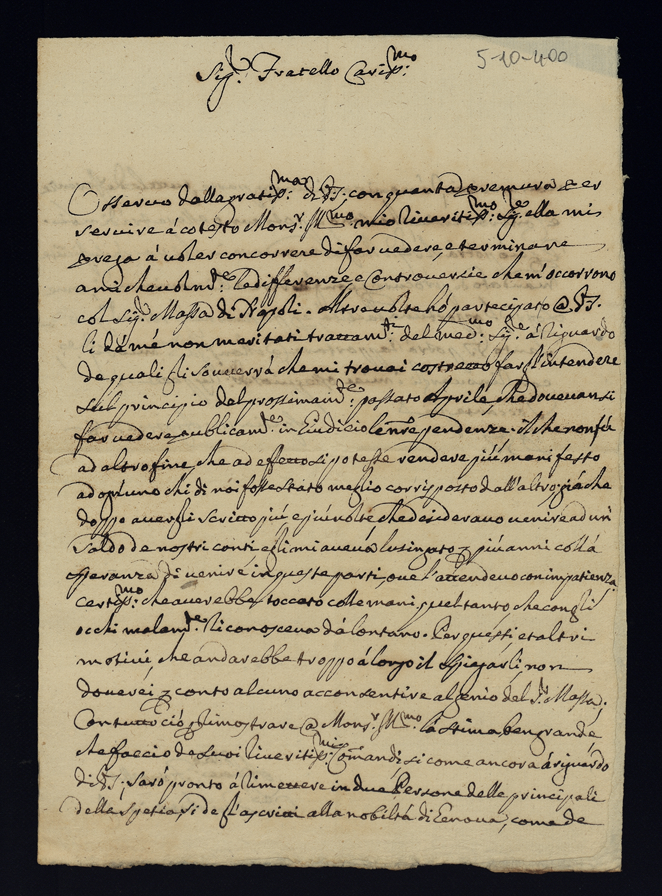 5-10-400
Sig.r Fratello Cariss.mo
Osservo dalla gratiss.ma di V.S. con quanta premura per
servire á cotesto Mons.r Ill.mo mio riveritiss.mo Sig.re ella mi
prega á voler concorrere di far vedere, e terminare
amichevolm.te le differenze, e Controversie che m'occorrono
col Sig.r Massa di Napoli. Altre volte hó partecipato @ V.S.
li dá mé non meritati trattam.ti del med.mo Sig.re á riguardo
de quali gli sovverrá che mi trovai costretto far l'intendere
sul principio del prossimam.te passato Aprile, che dovevansi
far vedere publicam.te in Giudicio le nre pendenze. il che non fú
ad altro fine, che ad effetto si potesse rendere piú manifesto
ad ogn'uno chi di nói fosse stato meglio corrisposto dall'altro, giá che
doppo avergli scritto piú e piú volte che desideravo venire ad un
saldo de nostri conti egli mi aveva lusingato p piú anni collá
speranza di venire in queste parti, ove l'attendevo con impatienza
certiss.mo che averebbe toccato colle mani, quel tanto che con gli
occhi malam.te li conosceva dá lontano. Per questi et altri
motivi, che andarebbe troppo á longo il spiegarli non
doverei p conto alcuno acconsentire al genio del S.r Massa;
Con tutto ció p dimostrare @ Mons.r Ill.mo la stima ben grande
che faccio de suoi riveritiss.mi Comandi, si come ancora á riguardo
di V.S. saró pronto á rimettere in due Persone delle principali
della spetiasi de gl'ascritti alla nobiltá di Genova, come de